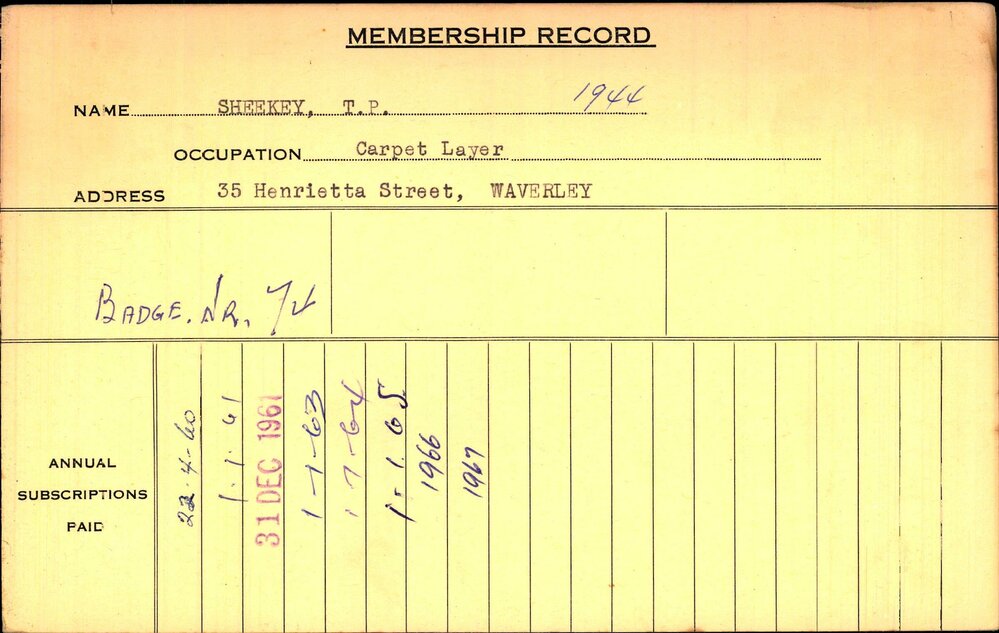 MEMBERSHIP RECORD
NAME SHEEKEY, T.P. 1944
OCCUPATION Carpet Layer
ADDRESS 35 Henrietta Street, WAVERLEY
BADGE. NR. 74
ANNUAL
SUBSCRIPTIONS
PAID
22.4-60
1.1.61
31 DEC 1961
1-1-63
1-7-64
1-1.65
1966
1967